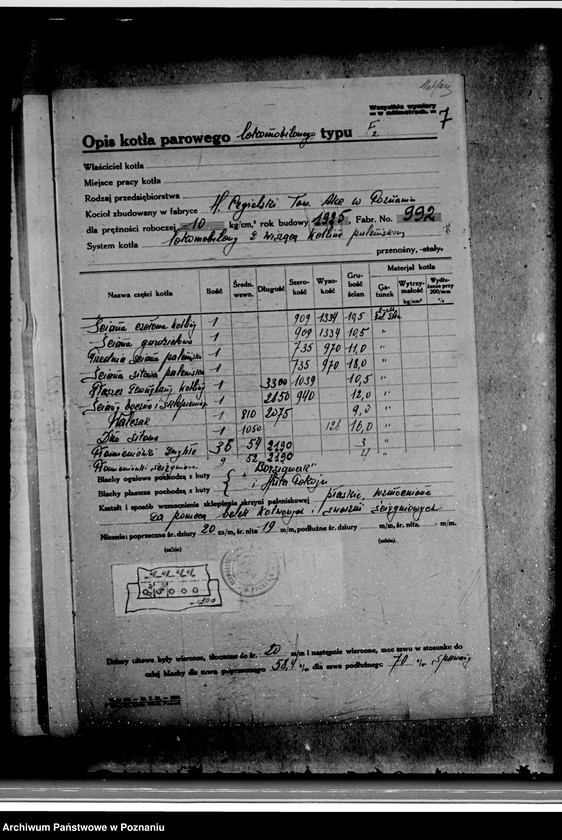 Wszystkie wymiary
w milimetrach.
7
Opis kotła parowego lokomobilowego typu F2
Właściciel kotła
Miejsce pracy kotła
Rodzaj przedsiębiorstwa
Kocioł zbudowany w fabryce H. Cegielski Tow. Akc w Poznaniu
dla prężności roboczej 10 kg/cm,² rok budowy 1925. Fabr. No. 992
System kotła lokomobilowy z wiszącą kotliną paleniskową
przenośny, stały.
Nazwa części kotła Ilość Średn. wewn. Długość Szerokość Wysokość Grubość ścian Materjał kotła
Gatunek Wytrzymałość kg/cm² Wydłużenie przy 200/mm %
Ściana czołowa kotliny 1 909 1334 19,5
Ściana gardzielowa 1 909 1334 10,5 "
Przednia ściana paleniska 1 735 970 11,0 "
Ściana sitowa paleniska 1 735 970 18,0 "
Płaszcz zewnętrzny kotliny 1 3300 1039 10,5 "
Ściany boczne i sklepienie 1 2850 940 12,0 "
Walczak 1 810 2075 9,0 "
Dno sitowe 1 1050 16,0 "
Płomieniówki zwykłe 36 54 2190 3 "
Płomieniówki ściągowe 9 52 2190 4 "
Blachy ogniowe pochodzą z huty "Borsigwerk"
Blachy płaszcza pochodzą z huty i Huta Pokoju
Kształt i sposób wzmocnienia sklepienia skrzyni paleniskowej płaskie, wzmocnione
za pomocą belek kotwowych i sworzni ściągniowych
Nicenie: poprzeczne śr. dziury 20 m/m, śr. nita 19 m/m, podłużne śr. dziury m/m, śr. nita m/m.
(szkic) (szkic).
48 48 48
Dziury nitowe były wiercone, tłoczone do śr. 20 m/m i następnie wiercone, moc szwu w stosunku do
całej blachy dla szwu poprzecznego 58,4 % dla szwu podłużnego 70 % spawany
Archiwum Państwowe w Poznaniu